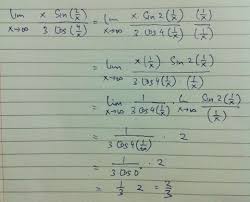 lim x→∞ x Sin(2/x) / 3 Cos(4/x) = lim x→∞ x Sin 2(1/x) (1/x) / 3 Cos 4(1/x) (1/x)
= lim x→∞ x(1/x) Sin 2(1/x) / 3 Cos 4(1/x) (1/x)
= lim x→∞ 1 / 3 Cos 4(1/x) · lim x→∞ Sin 2(1/x) / (1/x)
= 1 / 3 Cos 4(1/∞) · 2
= 1 / 3 Cos 0 · 2
= 1/3 · 2 = 2/3